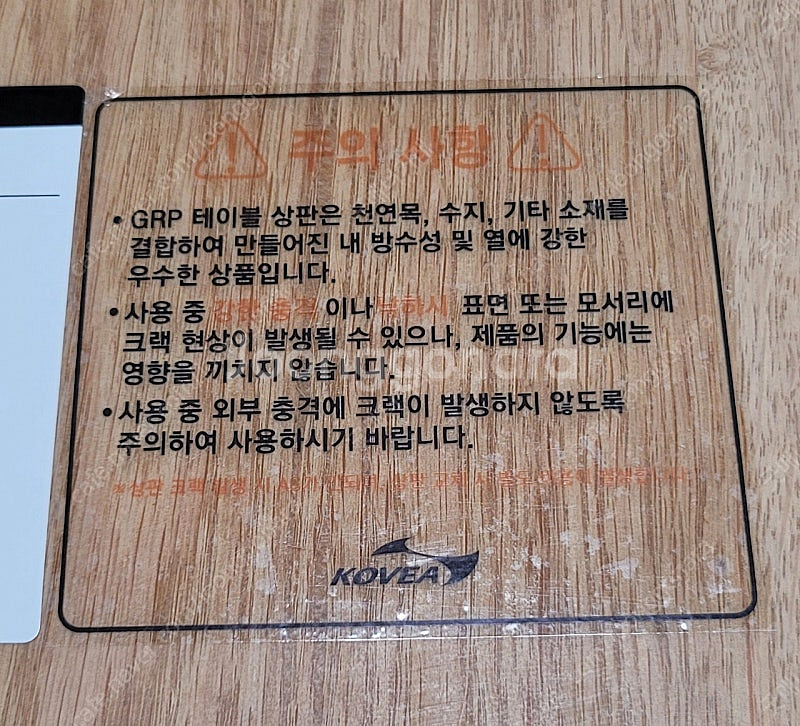 주의 사항
• GRP 테이블 상판은 천연목, 수지, 기타 소재를
결합하여 만들어진 내 방수성 및 열에 강한
우수한 상품입니다.
• 사용 중 강한 충격 이나 낙하시 표면 또는 모서리에
크랙 현상이 발생될 수 있으나, 제품의 기능에는
영향을 끼치지 않습니다.
• 사용 중 외부 충격에 크랙이 발생하지 않도록
주의하여 사용하시기 바랍니다.
※상판 크랙 발생 시 상판 교체 시 별도 비용이
KOVEA